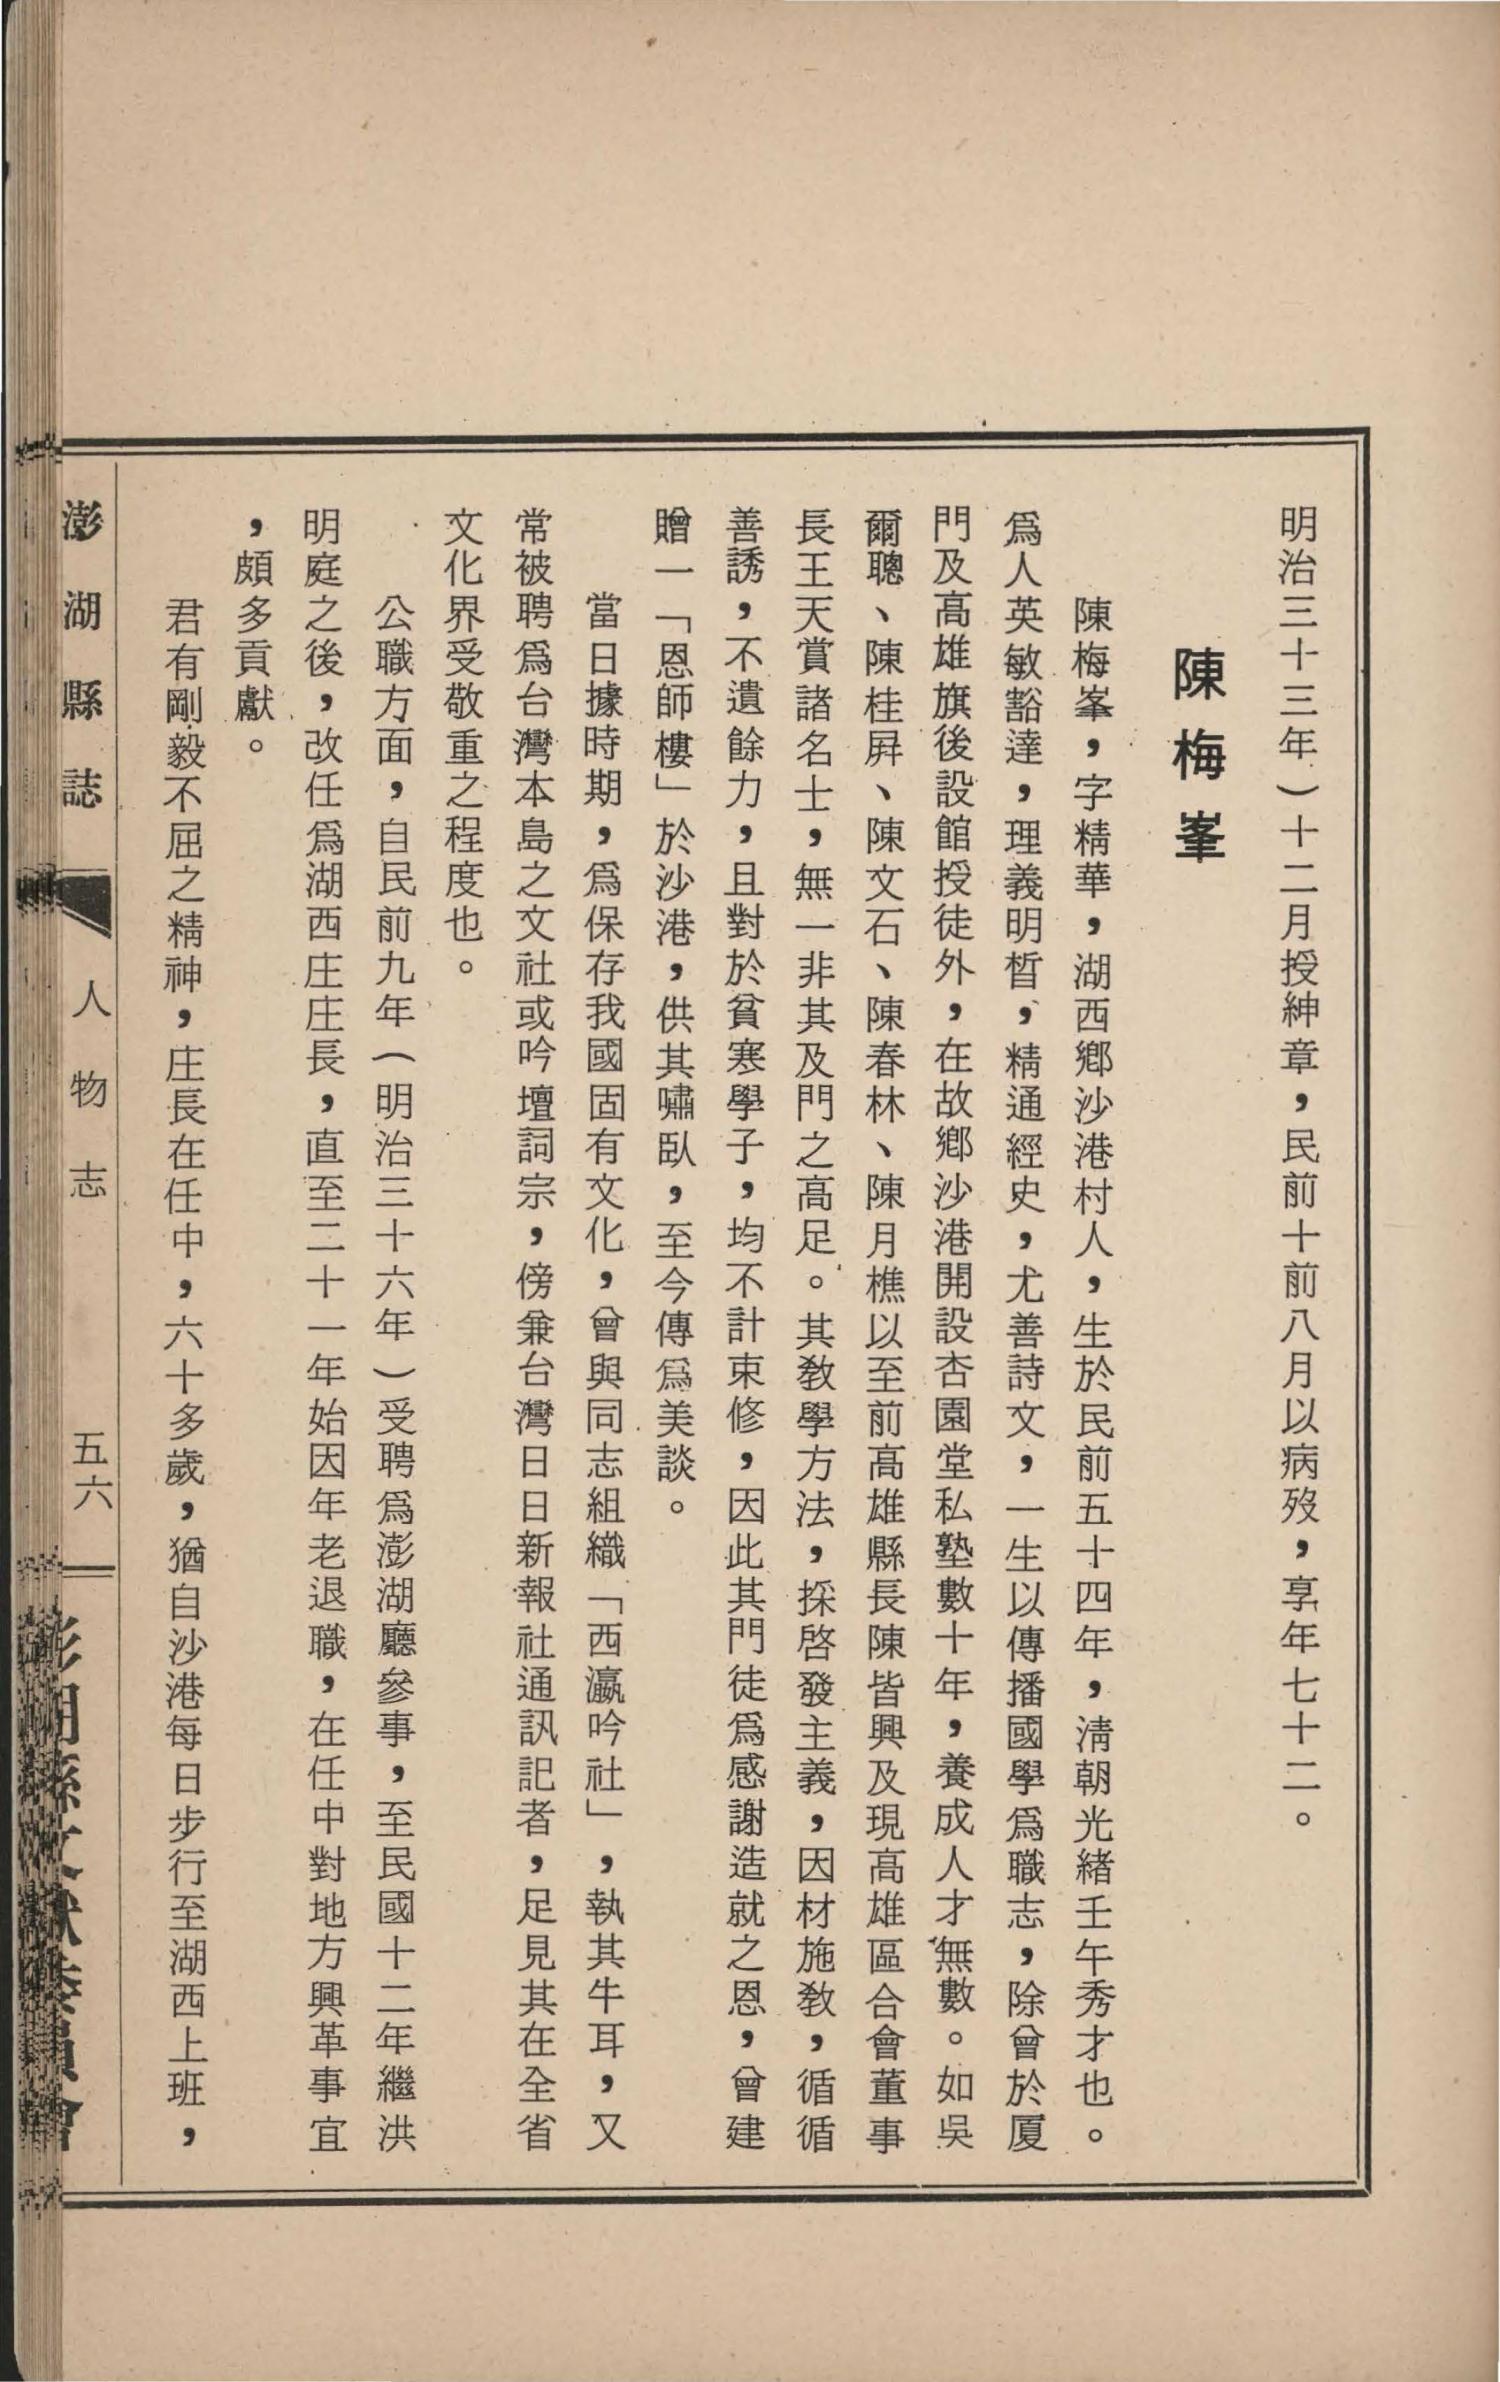 明治三十三年）十二月授紳章，民前十前八月以病歿，享年七十二。
陳梅峯
陳梅峯，字精華，湖西鄉沙港村人，生於民前五十四年，清朝光緒壬午秀才也。
爲人英敏豁達，理義明晳，精通經史，尤善詩文，一生以傳播國學爲職志，除曾於厦
門及高雄旗後設館授徒外，在故鄉沙港開設杏園堂私塾數十年，養成人才無數。如吳
爾聰、陳桂屛、陳文石、陳春林、陳月樵以至前高雄縣長陳皆興及現高雄區合會董事
長王天賞諸名士，無一非其及門之高足。其敎學方法，採啓發主義，因材施敎，循循
善誘，不遺餘力，且對於貧寒學子，均不計束修，因此其門徒爲感謝造就之恩，曾建
贈一「恩師樓」於沙港，供其嘯臥，至今傳爲美談。
當日據時期，爲保存我國固有文化，曾與同志組織「西瀛吟社」，執其牛耳，又
常被聘爲台灣本島之文社或吟壇詞宗，傍兼台灣日日新報社通訊記者，足見其在全省
文化界受敬重之程度也。
公職方面，自民前九年（明治三十六年）受聘爲澎湖廳參事，至民國十二年繼洪
明庭之後，改任爲湖西庄庄長，直至二十一年始因年老退職，在任中對地方興革事宜
，頗多貢獻。
君有剛毅不屈之精神，庄長在任中，六十多歲，猶自沙港每日步行至湖西上班，
澎湖縣誌 人物志 五六
澎湖縣文獻委員會